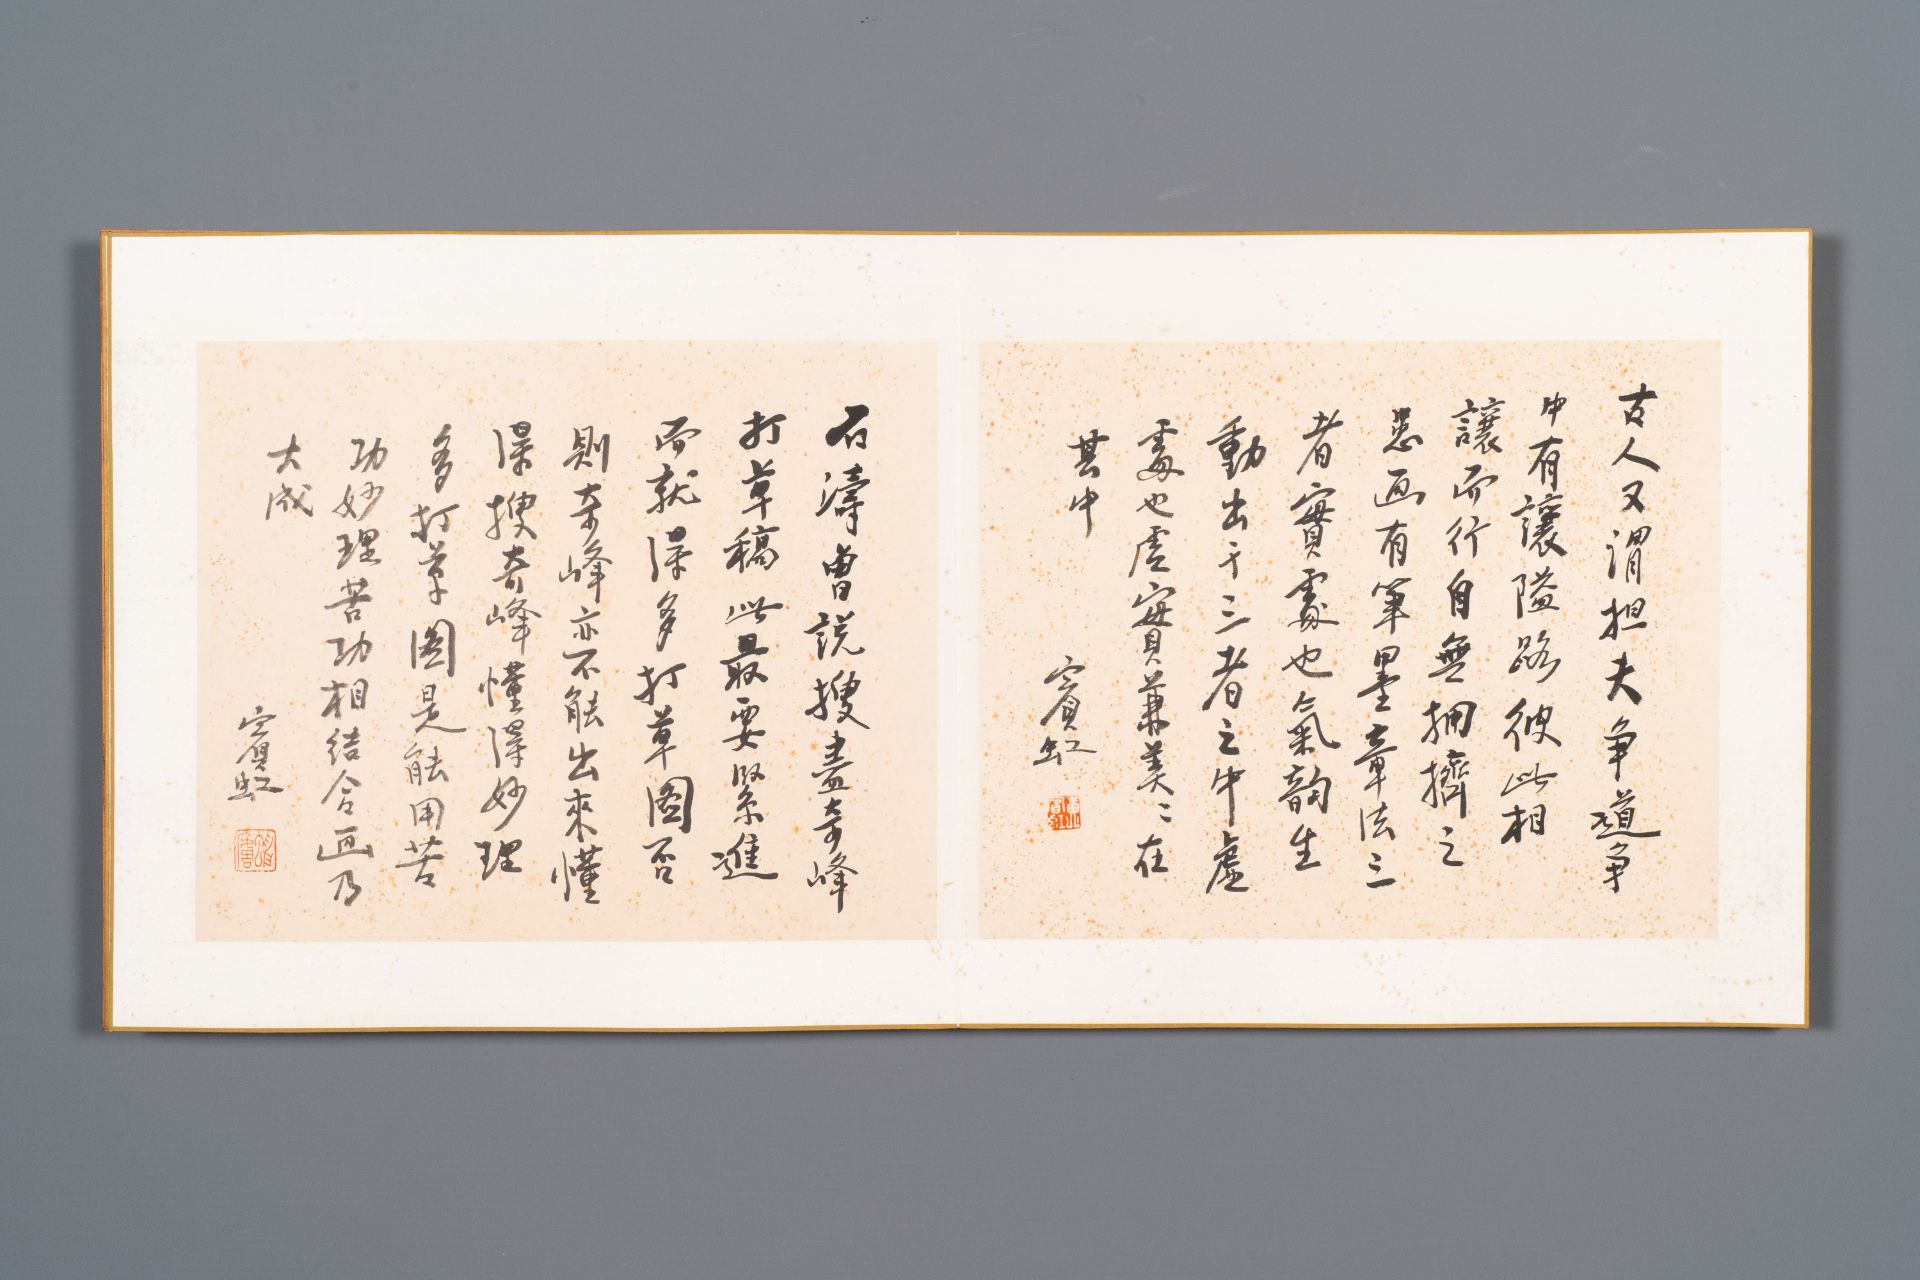 古人又谓担夫争道争
中有讓隘路彼此相
讓而行自無拥擠之
患画有筆墨章法三
者實處也氣韵生
動出于三者之中虚
處也虚實兼美〻在
其中
賓虹
石濤曾説搜盡奇峰
打草稿此最要緊進
而就深多打草图否
則奇峰亦不能出來懂
得搜奇峰懂得妙理
多打草图是能用苦
功妙理苦功相结合画乃
大成
賓虹